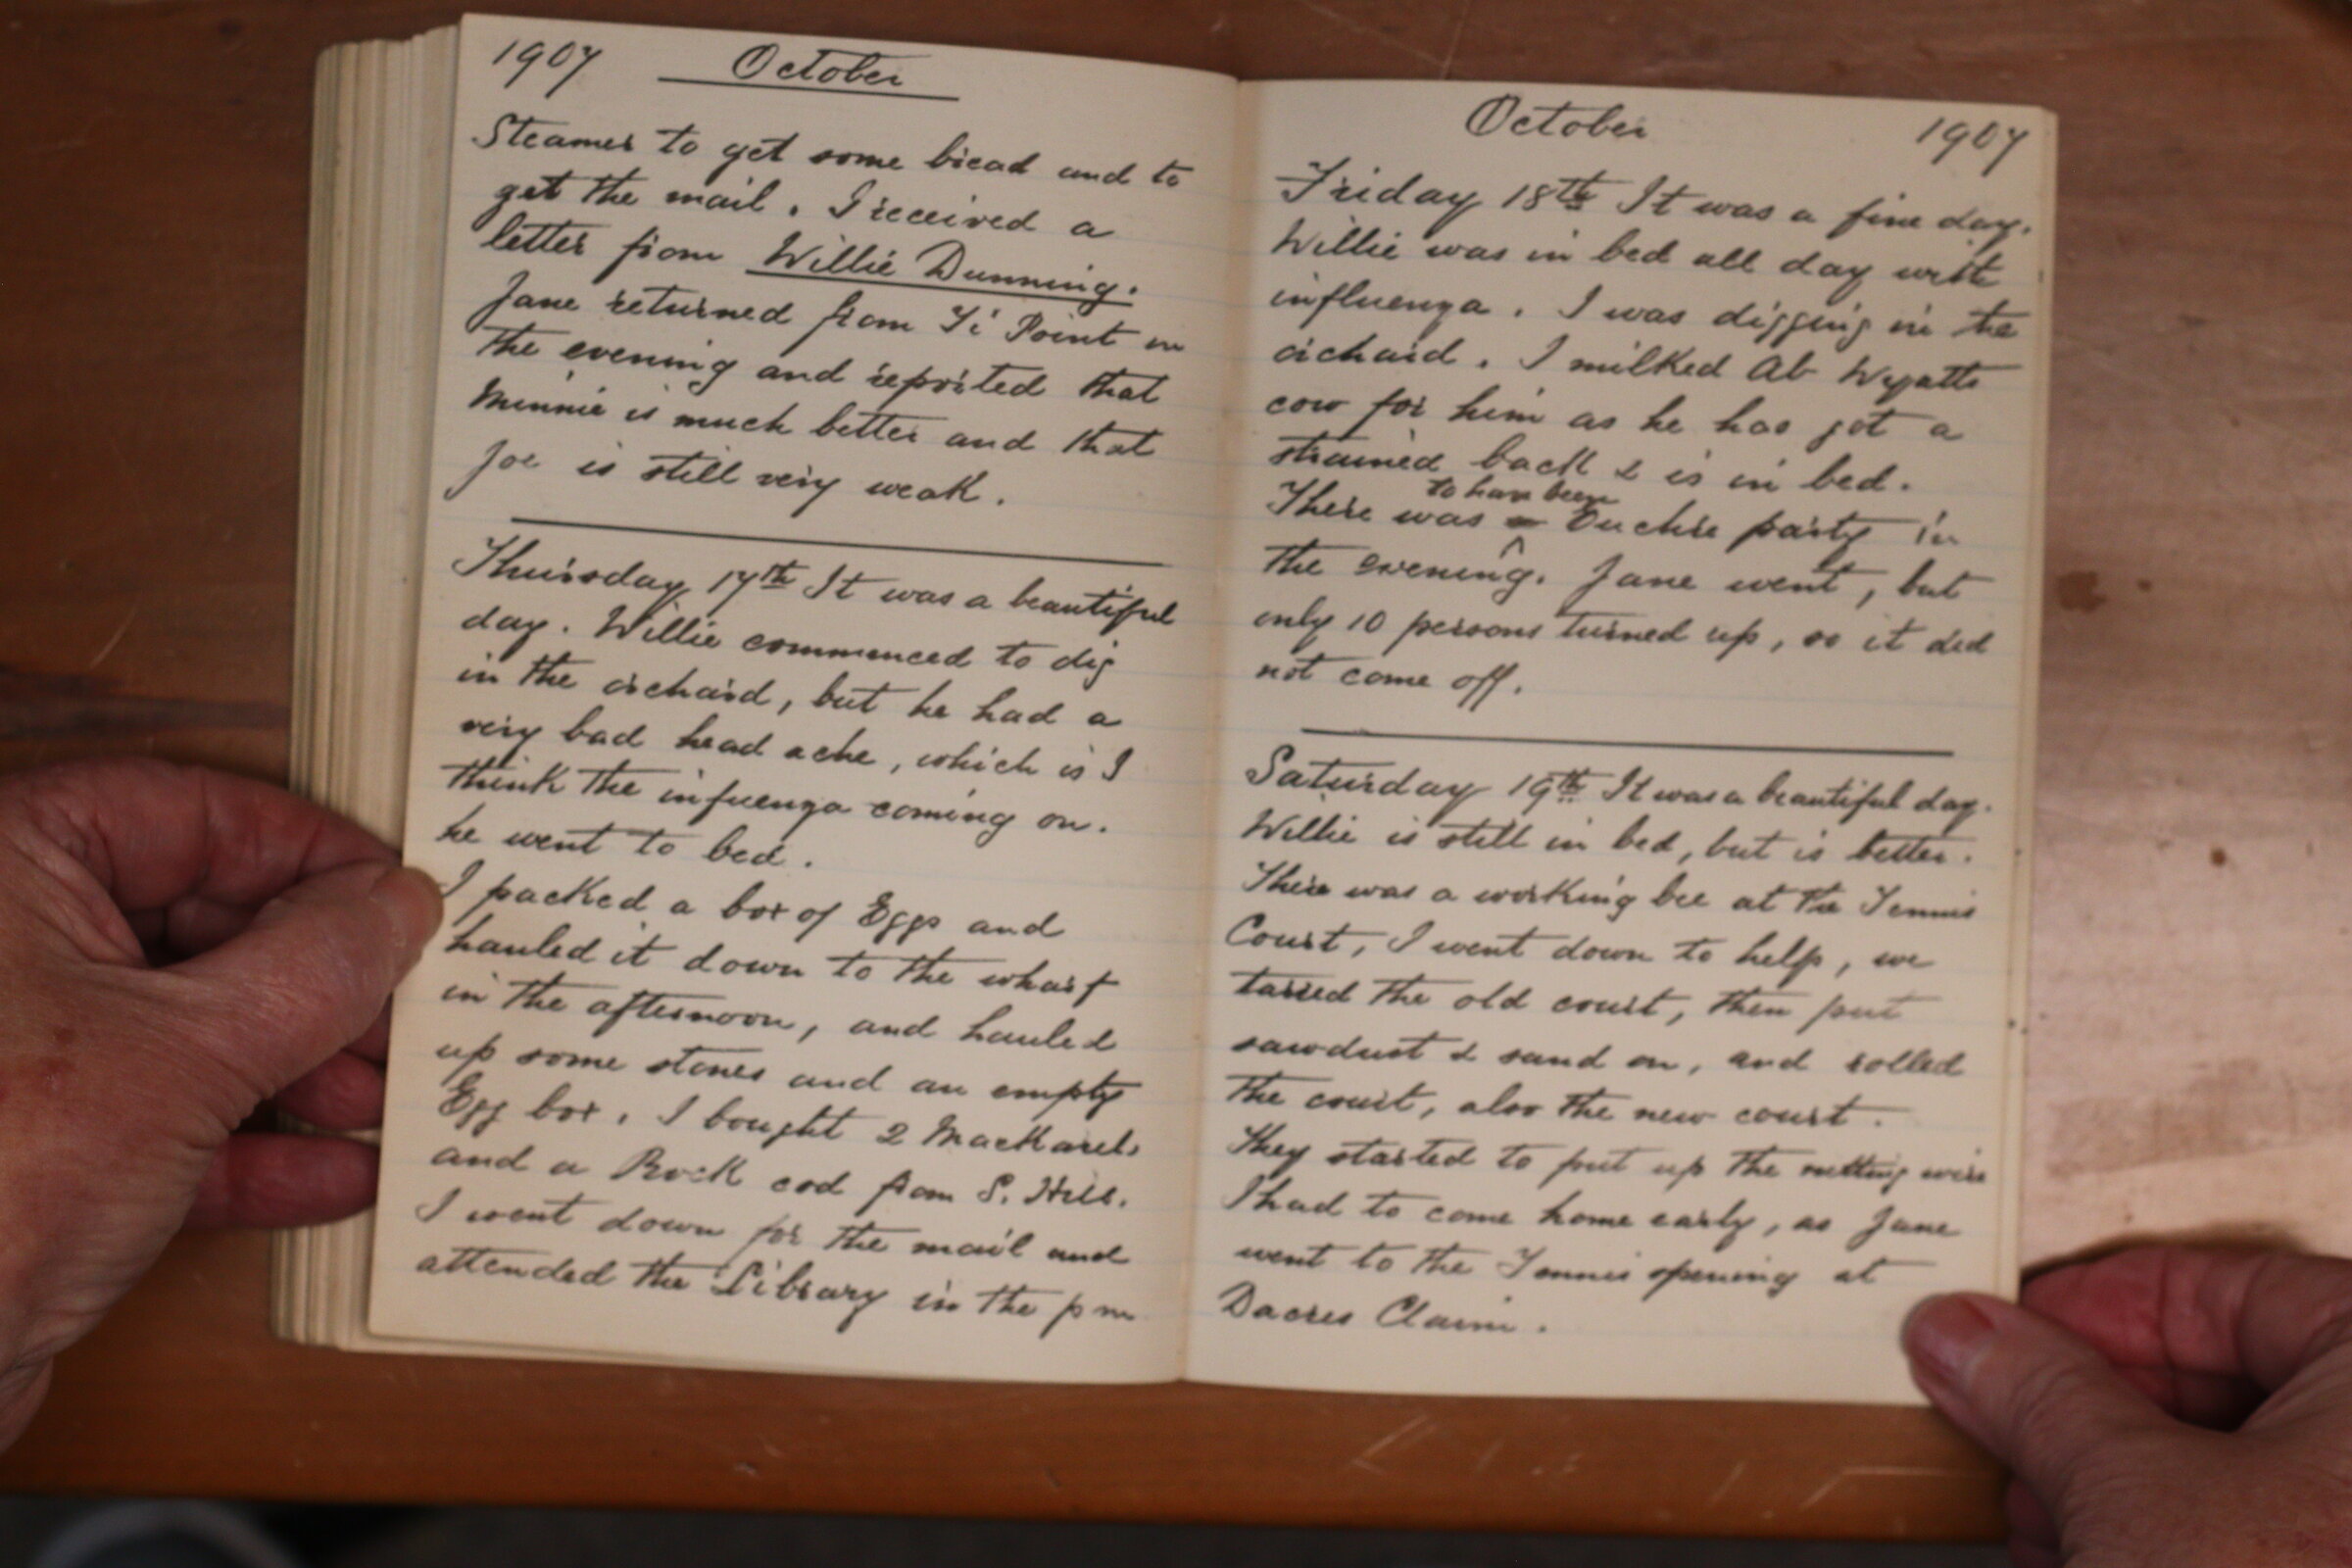 1907 October
Steamer to get some bread and to
get the mail. I received a
letter from Willie Dunning.
Jane returned from Ti Point in
the evening and reported that
Minnie is much better and that
Joe is still very weak.
Thursday 17th It was a beautiful
day. Willie commenced to dig
in the orchard, but he had a
very bad head ache, which is I
think the infuenza coming on.
he went to bed.
I packed a box of Eggs and
hauled it down to the wharf
in the afternoon, and hauled
up some stones and an empty
Egg box. I bought 2 Mackarels
and a Rock cod from S. Hill.
I went down for the mail and
attended the Library in the pm
October 1907
Friday 18th It was a fine day.
Willie was in bed all day with
influenza. I was digging in the
orchard. I milked Ab Wyatts
cow for him as he has got a
strained back & is in bed.
to have been
There was a Euchre party in
the evening. Jane went, but
only 10 persons turned up, so it did
not come off.
Saturday 19th It was a beautiful day.
Willie is still in bed, but is better.
There was a working bee at the Tennis
Court, I went down to help, we
tarred the old court, then put
sawdust & sand on, and rolled
the court, also the new court.
They started to put up the netting wire
I had to come home early, as Jane
went to the Tennis opening at
Dacres Claim.